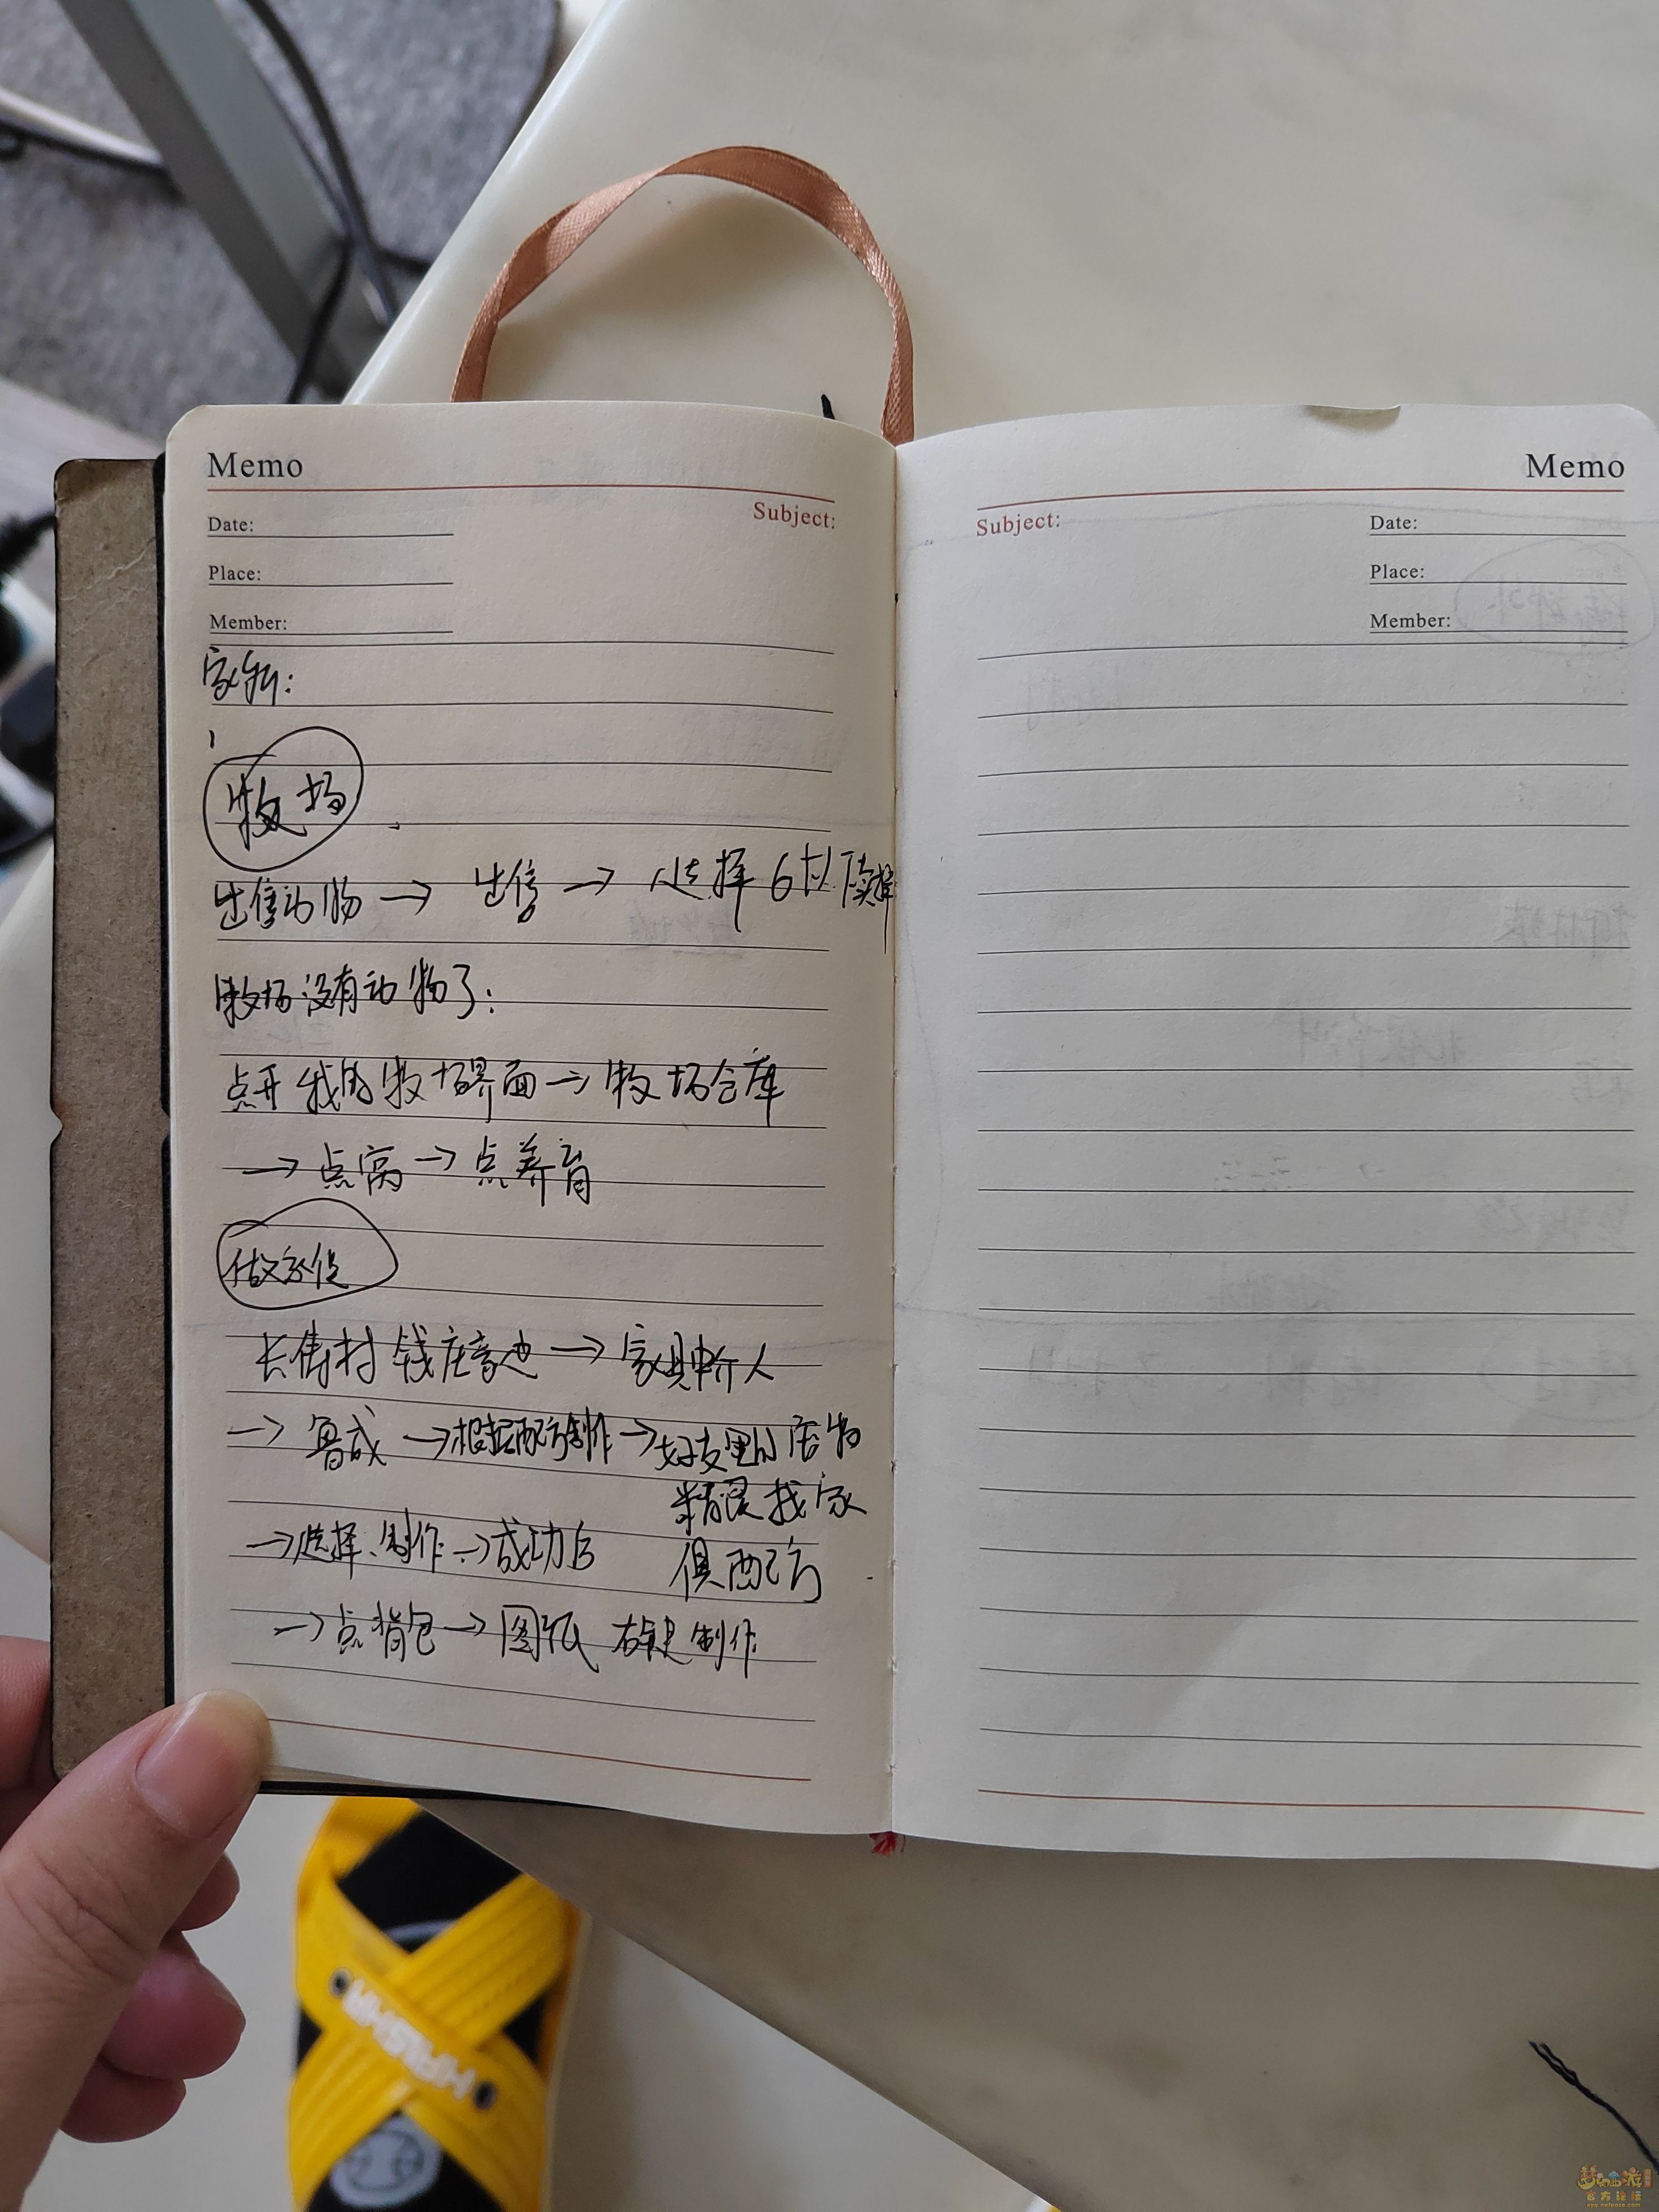 Memo
Subject:
Date:
Place:
Member:
牧场
出售动物 → 出售 → 选择 6
牧场没有动物了:
点开我的牧场界面 → 牧场仓库
→ 点窝 → 点养育
做家俱
长寿村 钱庄旁边 → 家具中介人
→ 鲁成 → 根据配方制作 → 好友里的宠物
精灵找家
→ 选择、制作 → 成功后
俱配方
→ 点背包 → 图纸 右键制作
Memo
Subject:
Date:
Place:
Member:
梦幻西游
官方论坛